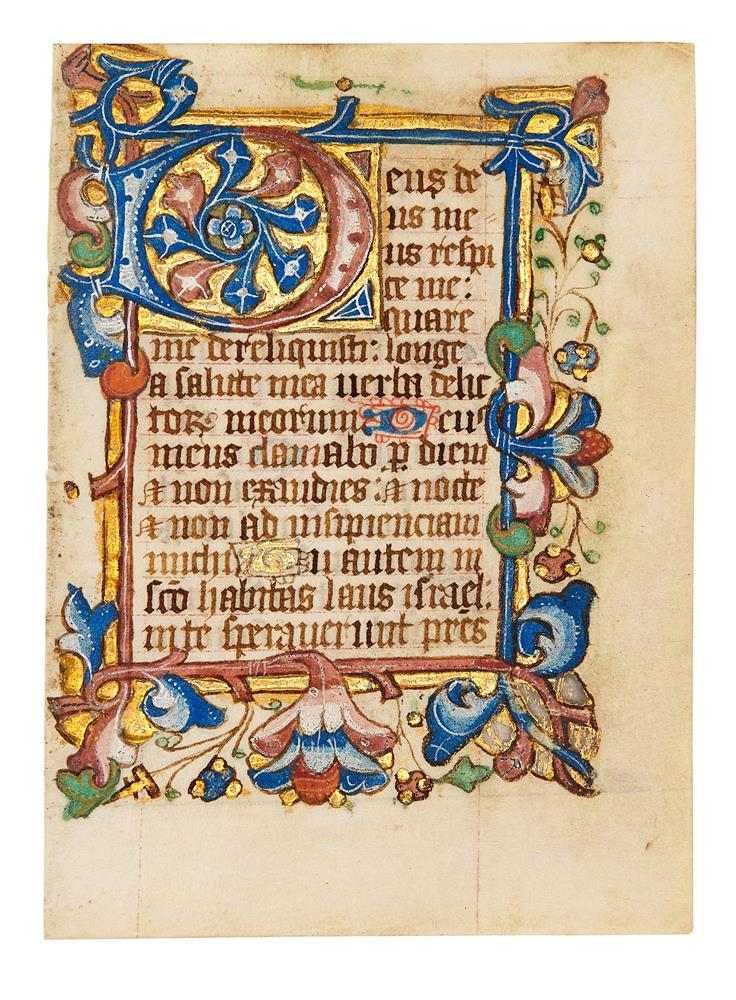 Deus de
us me
us respi
ce me:
quare
me dereliquisti: longe
a salute mea uerba delic
torꝝ meorum Deus
meus clamabo ꝑ diem
⁊ non exaudies: ⁊ nocte
⁊ non ad insipienciam
michi Tu autem in
sc̄o habitas laus israel.
in te sperauerunt pr̄es